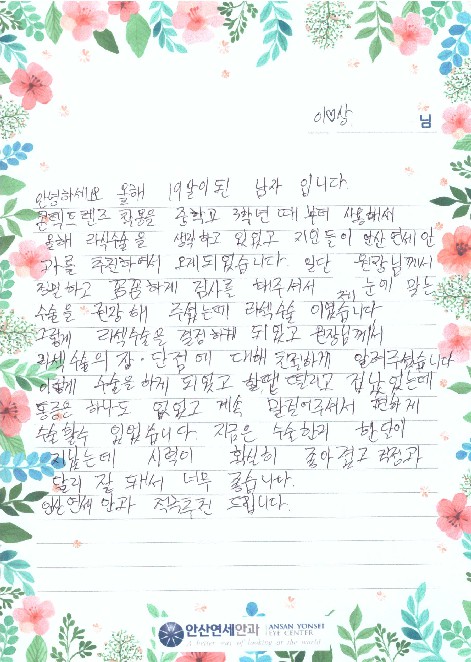 이♡상 님
안녕하세요 올해 19살이 된 남자 입니다.
콘택트렌즈 착용을 중학교 3학년 때 부터 사용해서
올해 라식수술을 생각하고 있었고 지인들이 안산연세안
과를 추천하여서 오게되었습니다. 일단 원장님께서
친절하고 꼼꼼하게 검사를 해주셔서 제 눈에 맞는
수술을 권장해 주셨는데 라섹수술 이었습니다
그렇게 라섹수술을 결정하게 되었고 원장님께서
라섹수술의 장·단점에 대해 친절하게 알려주셨습니다
이렇게 수술을하게 되었고 할때 떨리고 겁났었는데
통증은 하나도 없었고 계속 말걸어주셔서 편하게
수술할수 있었습니다. 지금은 수술한지 한달이
지났는데 시력이 확실히 좋아졌고 걱정과
달리 잘 돼서 너무 좋습니다.
안산연세 안과 적극추천 드립니다.
안산연세안과 ANSAN YONSEI
EYE CENTER
A better way of looking at the world